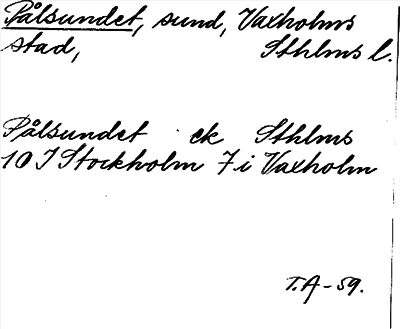 Pålsundet, sund, Vaxholms
stad, Sthlms l.
Pålsundet ek Sthlms
10 J Stockholm 7 i Vaxholm
T.A-59.